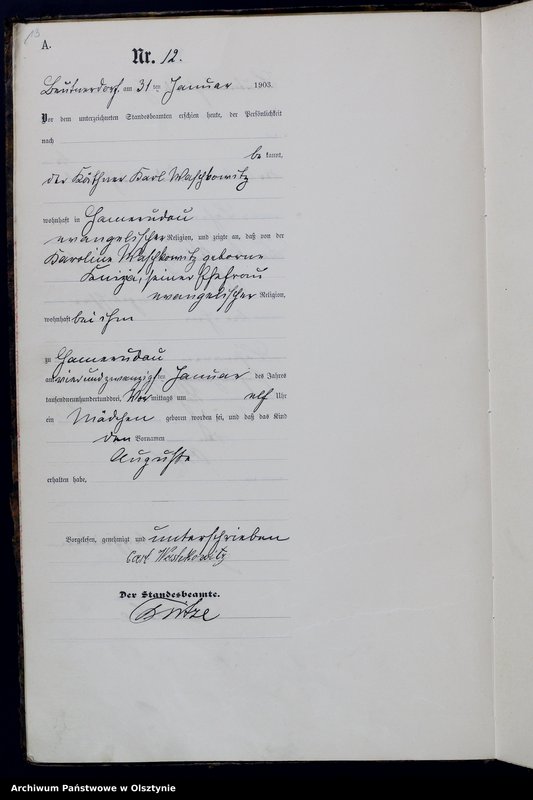 13
A.
Nr. 12.
Beutnerdorf, am 31 ten Januar 1903.
Vor dem unterzeichneten Standesbeamten erschien heute, der Persönlichkeit
nach
be kannt,
der Käthner Karl Waschkowitz
wohnhaft in Gamerudau
evangelischer Religion, und zeigte an, daß von der
Karoline Waschkowitz geborne
seiner Ehefrau
evangelischer Religion,
wohnhaft bei ihm
zu Gamerudau
am vierundzwanzigsten Januar des Jahres
tausendneunhundertunddrei, Vor mittags um elf Uhr
ein Mädchen geboren worden sei, und daß das Kind
den Vornamen
Auguste
erhalten habe,
Vorgelesen, genehmigt und unterschrieben
Carl Waschkowitz
Der Standesbeamte.
Archiwum Państwowe w Olsztynie